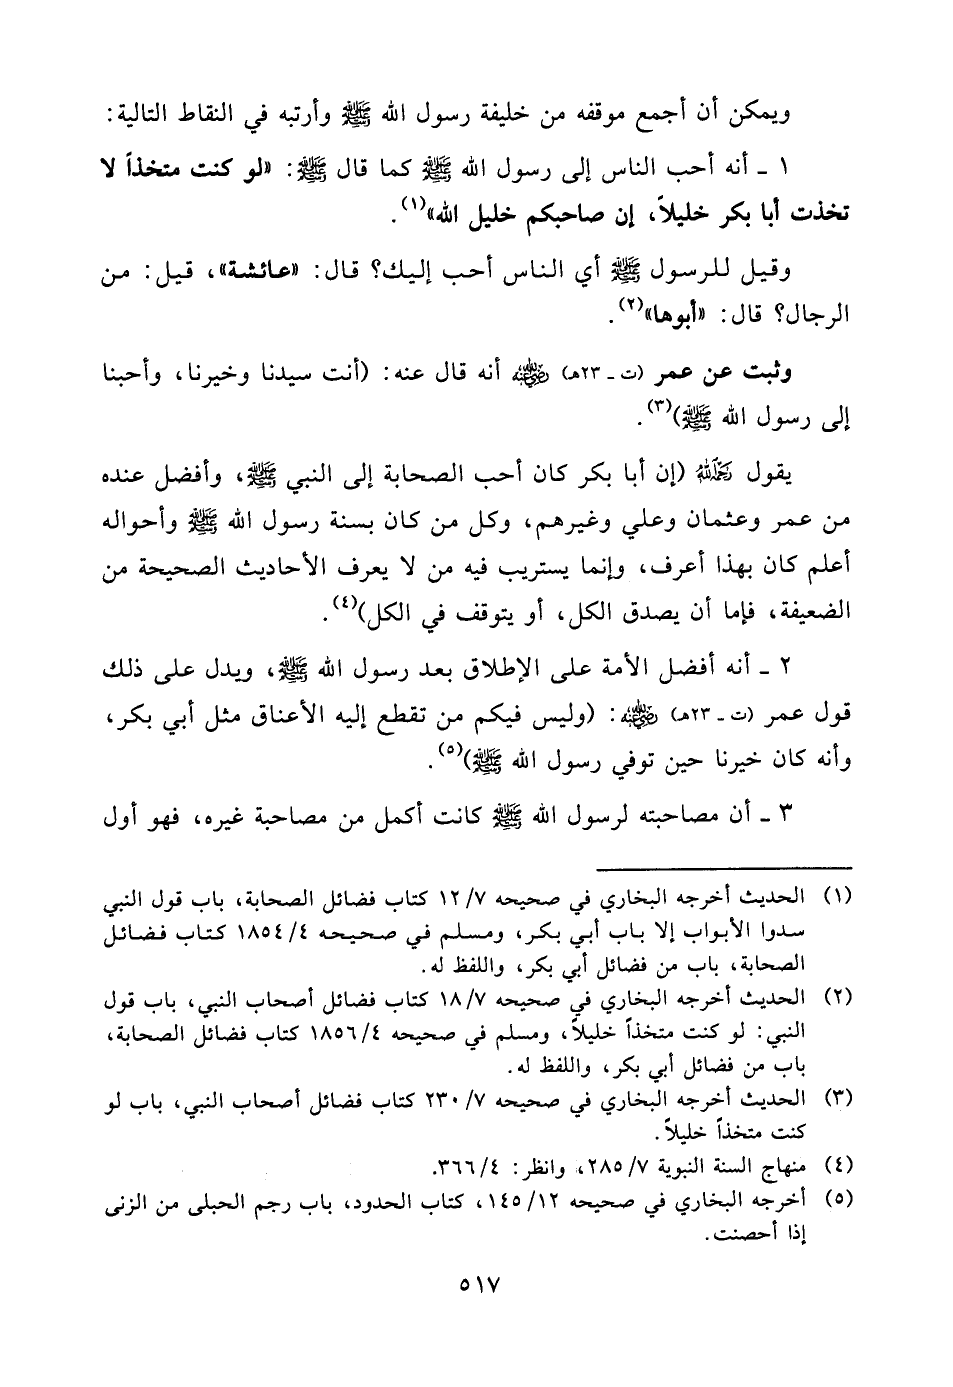 ويمكن أن أجمع موقفه من خليفة رسول الله ﷺ وأرتبه في النقاط التالية:
١ ـ أنه أحب الناس إلى رسول الله ﷺ كما قال ﷺ: «لو كنت متخذاً لا
تخذت أبا بكر خليلاً، إن صاحبكم خليل الله»(١).
وقيل للرسول ﷺ أي الناس أحب إليك؟ قال: «عائشة»، قيل: من
الرجال؟ قال: «أبوها»(٢).
وثبت عن عمر (ت ـ ٢٣هـ) رضي الله عنه أنه قال عنه: (أنت سيدنا وخيرنا، وأحبنا
إلى رسول الله ﷺ)(٣).
يقول رحمه الله (إن أبا بكر كان أحب الصحابة إلى النبي ﷺ، وأفضل عنده
من عمر وعثمان وعلي وغيرهم، وكل من كان بسنة رسول الله ﷺ وأحواله
أعلم كان بهذا أعرف، وإنما يستريب فيه من لا يعرف الأحاديث الصحيحة من
الضعيفة، فإما أن يصدق الكل، أو يتوقف في الكل)(٤).
٢ ـ أنه أفضل الأمة على الإطلاق بعد رسول الله ﷺ، ويدل على ذلك
قول عمر (ت ـ ٢٣هـ) رضي الله عنه: (وليس فيكم من تقطع إليه الأعناق مثل أبي بكر،
وأنه كان خيرنا حين توفي رسول الله ﷺ)(٥).
٣ ـ أن مصاحبته لرسول الله ﷺ كانت أكمل من مصاحبة غيره، فهو أول
(١) الحديث أخرجه البخاري في صحيحه ١٢/٧ كتاب فضائل الصحابة، باب قول النبي
سدوا الأبواب إلا باب أبي بكر، ومسلم في صحيحه ١٨٥٤/٤ كتاب فضائل
الصحابة، باب من فضائل أبي بكر، واللفظ له.
(٢) الحديث أخرجه البخاري في صحيحه ١٨/٧ كتاب فضائل أصحاب النبي، باب قول
النبي: لو كنت متخذاً خليلاً، ومسلم في صحيحه ١٨٥٦/٤ كتاب فضائل الصحابة،
باب من فضائل أبي بكر، واللفظ له.
(٣) الحديث أخرجه البخاري في صحيحه ٢٣٠/٧ كتاب فضائل أصحاب النبي، باب لو
كنت متخذاً خليلاً.
(٤) منهاج السنة النبوية ٢٨٥/٧، وانظر: ٣٦٦/٤.
(٥) أخرجه البخاري في صحيحه ١٤٥/١٢، كتاب الحدود، باب رجم الحبلى من الزنى
إذا أحصنت.
٥١٧